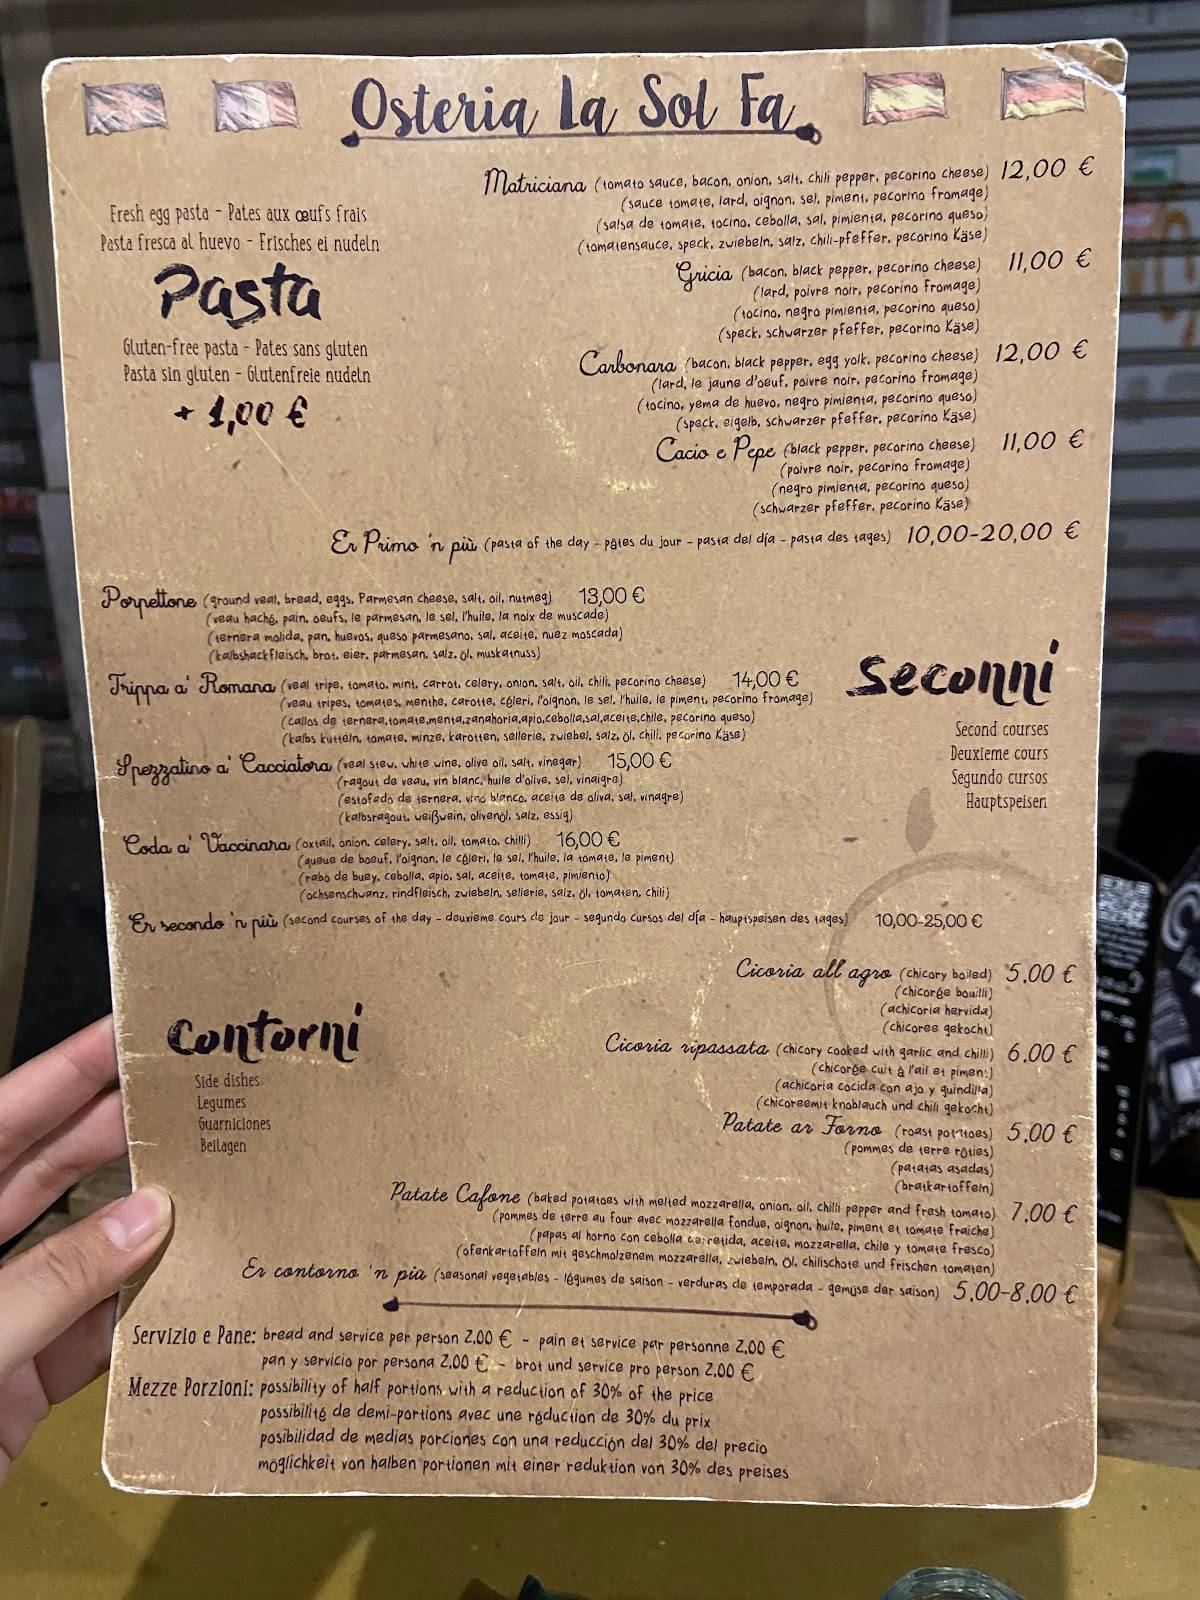 Osteria La Sol Fa
Fresh egg pasta - Pates aux œufs frais
Pasta fresca al huevo - Frisches ei nudeln
Pasta
Gluten-free pasta - Pates sans gluten
Pasta sin gluten - Glutenfreie nudeln
+ 1,00 €
Matriciana (tomato sauce, bacon, onion, salt, chili pepper, pecorino cheese) 12,00 €
(sauce tomate, lard, oignon, sel, piment, pecorino fromage)
(salsa de tomate, tocino, cebolla, sal, pimienta, pecorino queso)
(tomatensauce, speck, zwiebeln, salz, chili-pfeffer, pecorino Käse)
Gricia (bacon, black pepper, pecorino cheese) 11,00 €
(lard, poivre noir, pecorino fromage)
(tocino, negro pimienta, pecorino queso)
(speck, schwarzer pfeffer, pecorino Käse)
Carbonara (bacon, black pepper, egg yolk, pecorino cheese) 12,00 €
(lard, le jaune d'oeuf, poivre noir, pecorino fromage)
(tocino, yema de huevo, negro pimienta, pecorino queso)
(speck, eigelb, schwarzer pfeffer, pecorino Käse)
Cacio e Pepe (black pepper, pecorino cheese) 11,00 €
(poivre noir, pecorino fromage)
(negro pimienta, pecorino queso)
(schwarzer pfeffer, pecorino Käse)
Er Primo 'n più (pasta of the day - pâtes du jour - pasta del día - pasta des tages) 10,00-20,00 €
Seconni
Second courses
Deuxieme cours
Segundo cursos
Hauptspeisen
Porpettone (ground veal, bread, eggs, Parmesan cheese, salt, oil, nutmeg) 13,00 €
(veau haché, pain, oeufs, le parmesan, le sel, l'huile, la noix de muscade)
(ternera molida, pan, huevos, queso parmesano, sal, aceite, nuez moscada)
(kalbshackfleisch, brot, eier, parmesan, salz, öl, muskatnuss)
Trippa a' Romana (veal tripe, tomato, mint, carrot, celery, onion, salt, oil, chili, pecorino cheese) 14,00 €
(veau tripes, tomates, menthe, carotte, céleri, l'oignon, le sel, l'huile, le piment, pecorino fromage)
(callos de ternera,tomate,menta,zanahoria,apio,cebolla,sal,aceite,chile, pecorino queso)
(kalbs kutteln, tomate, minze, karotten, sellerie, zwiebel, salz, öl, chili, pecorino Käse)
Spezzatino a' Cacciatora (veal stew, white wine, olive oil, salt, vinegar) 15,00 €
(ragout de veau, vin blanc, huile d'olive, sel, vinaigre)
(estofado de ternera, vino blanco, aceite de oliva, sal, vinagre)
(kalbsragout, weißwein, olivenöl, salz, essig)
Coda a' Vaccinara (oxtail, onion, celery, salt, oil, tomato, chilli) 16,00 €
(queue de boeuf, l'oignon, le céleri, le sel, l'huile, la tomate, le piment)
(rabo de buey, cebolla, apio, sal, aceite, tomate, pimiento)
(ochsenschwanz, rindfleisch, zwiebeln, sellerie, salz, öl, tomaten, chili)
Er secondo 'n più (second courses of the day - deuxieme cours de jour - segundo cursos del día - hauptspeisen des tages) 10,00-25,00 €
Contorni
Side dishes
Legumes
Guarniciones
Beilagen
Cicoria all'agro (chicory boiled) 5.00 €
(chicorée bouilli)
(achicoria hervida)
(chicoree gekocht)
Cicoria ripassata (chicory cooked with garlic and chilli) 6.00 €
(chicorée cuit à l'ail et piment)
(achicoria cocida con ajo y guindilla)
(chicoreemit knoblauch und chili gekocht)
Patate ar Forno (roast potatoes) 5.00 €
(pommes de terre rôties)
(patatas asadas)
(bratkartoffeln)
Patate Cafone (baked potatoes with melted mozzarella, onion, oil, chilli pepper and fresh tomato) 7.00 €
(pommes de terre au four avec mozzarella fondue, oignon, huile, piment et tomate fraiche)
(papas al horno con cebolla derretida, aceite, mozzarella, chile y tomate fresco)
(ofenkartoffeln mit geschmolzenem mozzarella, zwiebeln, öl, chilischote und frischen tomaten)
Er contorno 'n più (seasonal vegetables - légumes de saison - verduras de temporada - gemüse der saison) 5.00-8.00 €
Servizio e Pane: bread and service per person 2,00 € - pain et service par personne 2,00 €
pan y servicio por persona 2,00 € - brot und service pro person 2,00 €
Mezze Porzioni: possibility of half portions with a reduction of 30% of the price
possibilité de demi-portions avec une réduction de 30% du prix
posibilidad de medias porciones con una reducción del 30% del precio
möglichkeit von halben portionen mit einer reduktion von 30% des preises